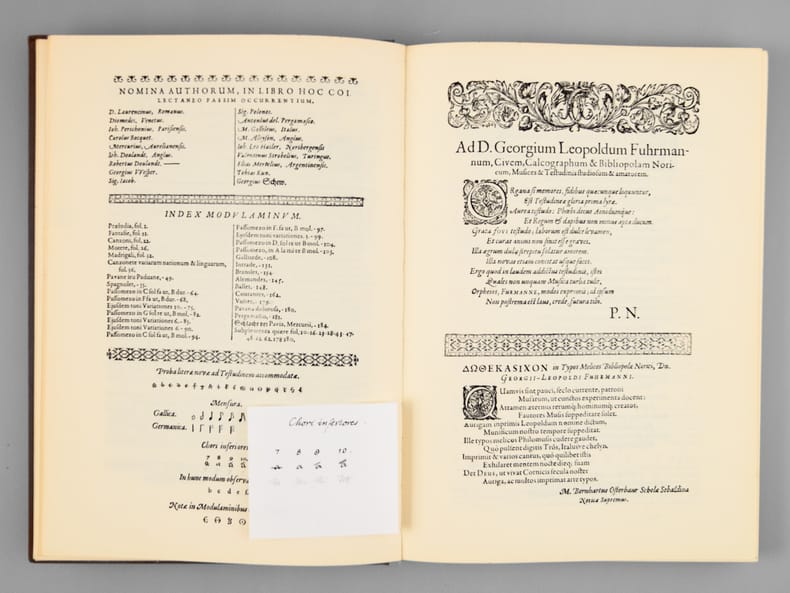 NOMINA AUTHORUM, IN LIBRO HOC COL
LECTANEO PASSIM OCCURRENTIUM.
D. Laurencinus, Romanus.
Diomedes, Venetus.
Ioh. Perichonius, Parisiensis.
Carolus Bocquet.
Mercurius, Aurelianensis.
Ioh. Doulandt, Anglus.
Robertus Doulandt.
Georgius
Sig. Iacob.
Sig. Polonos.
Antonius del. Pergamasco.
M. Galileius, Italus.
Anglus.
Ioh. Leo Hasler, Noribergensis
Valentinus Strobelius, Turingus.
Elias Mertelius, Argentinensis.
Tobias Kun.
Georgius
INDEX MODVLAMINVM.
Præludia, fol. 1.
Fantasiæ, fol.
Canzoni, fol. 22.
Motetæ, 26.
Madrigali, fol. 32.
Canzonete variarum nationum & linguarum,
fol. 36.
Pavane sive Paduane, - 49.
Spagnoles, - 55.
Passomezo in C sol fa ut, B dur. - 64.
Passomezo in F fa ut, B dur. - 68.
Ejusdem toni Variationes
Passomezo in G sol re ut, B mol. - 82.
Ejusdem toni Variationes 6. - 85.
Ejusdem toni Variationes 6. - 90.
Passomezo in G sol re ut, B mol. - 94.
Passomezo in F. fa ut, B mol. - 97.
Ejusdem toni variationes - 99.
Passomezo in D. sol re ut B mol. - 104.
Passomezo, in A la mi re B mol. - 105.
Galliarde, - 108.
Intrade, - 132.
Branslés, - 134.
Alemandes, - 145.
Ballet. - 148.
Courantes, - 162.
Voltes, - 179.
Pavana dolorosa, - 180.
- 182.
Schlacht vor Pavia, Mercurii, - 184.
Supplementa quære fol.
Proba literæ novæ ad Testudinem accommodatæ.
Mensura.
Gallica.
Germanica.
Chori inferiores
7 8 9 10.
In hunc modum observa
Notæ in Modulaminibus
Chori inferiores.
7 8 9 10.
a a a a
Ad D. Georgium Leopoldum Fuhrman-
num, Civem, Calcographum & Bibliopolam Nori-
cum, Musices & Testudinis studiosum & amatorem.
ORgana si memores, fidibus quæcunque loquuntur,
Est Testudineæ gloria prima lyræ.
Aurea testudo: Phœbi decus Aonidumque:
Et Regum & dapibus non inopia apta ducum.
Grata foris testudo; laborum est dulce levamen,
Et curas animi non sinit esse graves.
Illa ægrum dulci strepitu solatur amorem.
Illa novas etiam concitat usque faces.
Ergo quod in laudem addictus testudinis, istri
Quales non unquam Musica turba tulit,
Orpheiis, FURMANNE, modos exprimis; id ipsum
Non postrema est laus, crede, futura tibi.
P. N.
ΔΩΘΕΚΑΣΙΧΟΝ in Typos Melicos Bibliopolæ Norici, Dn.
GEORGII-LEOPOLDI FUHRMANNI.
QUamvis sint pauci, seclo currente, patroni
Musarum, ut cunctos experimenta docent:
Attamen æternus rerumq; hominumq; creator,
Fautores Musis suppeditare solet.
Autigam inprimis Leopoldum nomine dictum,
Munificum nostro tempore suppeditat.
Ille typos melicos Philomusis cudere gaudet,
Quo pulsent digitis Trôs, Italusve chelyn.
Imprimit & varios cantus, quo quilibet istis
Exhilaret mentem nocte dieq; suam
Det DEUS, ut vivat Cornicis secula noster
Autiga, ac multos imprimat arte typos.
M. Bernhartus Osterhauer Scholæ Sebaldinæ
Noricæ Supremus.